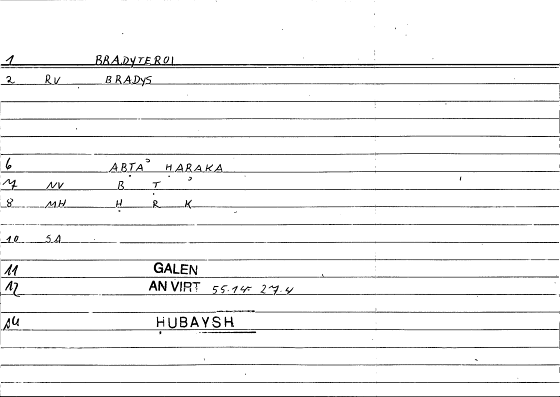 1 BRADYTEROI
2 RV BRADYS
6 ABṬAʾ ḤARAKA
7 NV B Ṭ ʾ
8 MH Ḥ R K
10 SA
11 GALEN
12 AN VIRT 55.14 = 27.4
14 ḤUBAYSH